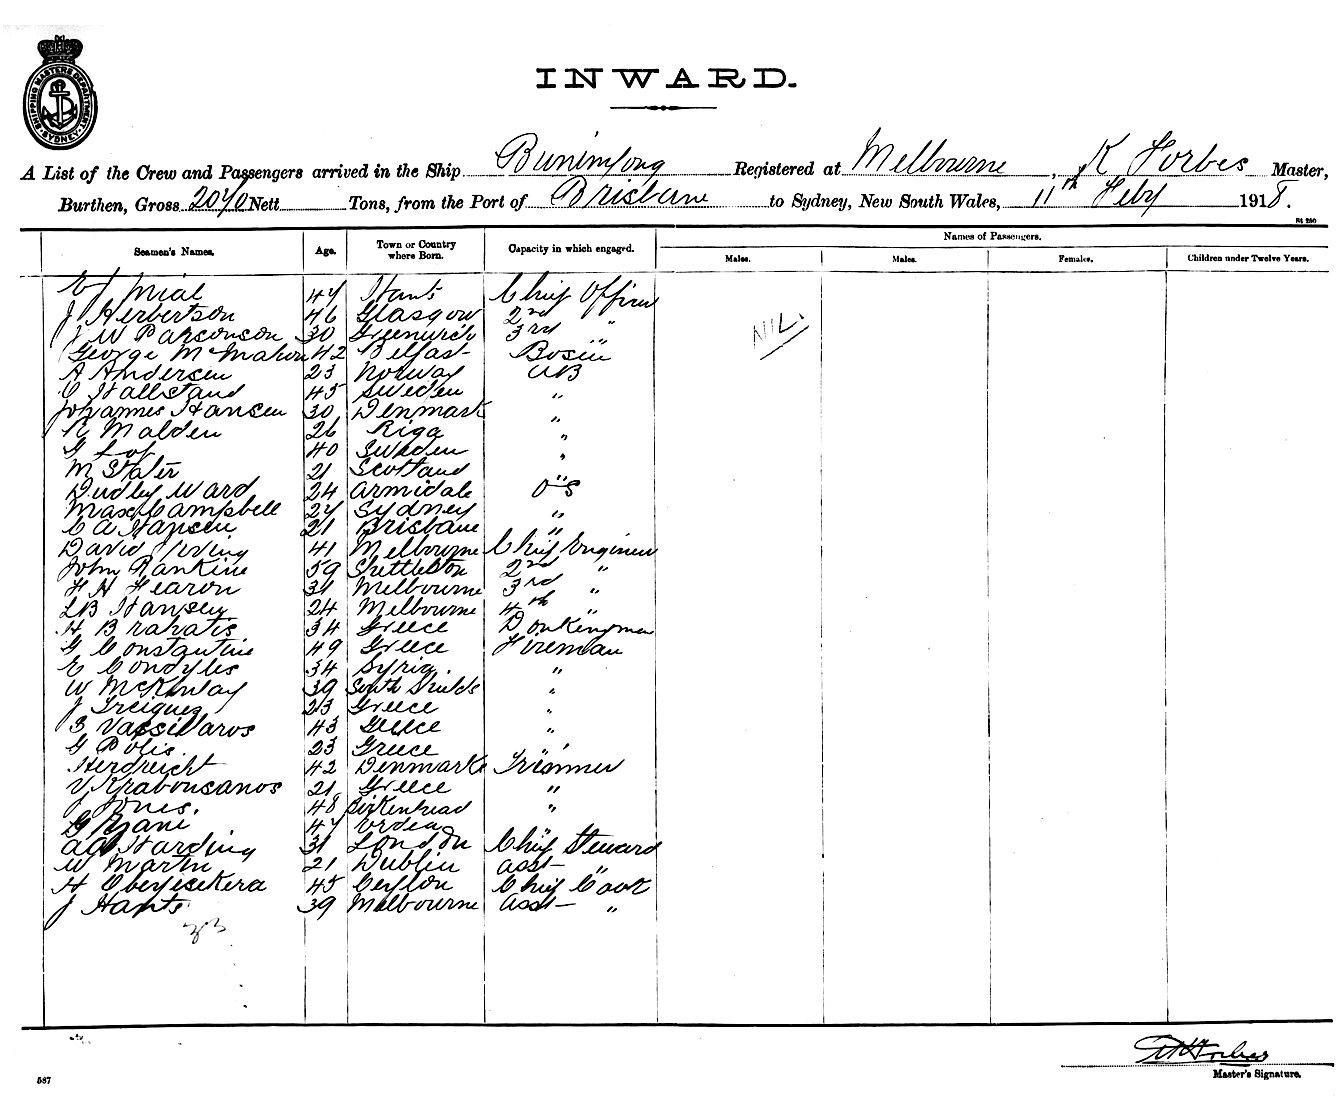 SHIPPING MASTERS DEPARTMENT SYDNEY
INWARD.
A List of the Crew and Passengers arrived in the Ship Buninyong Registered at Melbourne, K Forbes Master,
Burthen, Gross 2070 Nett Tons, from the Port of Brisbane to Sydney, New South Wales, 11th Feby 1918.
St 280
Seamen's Names. Age. Town or Country where Born. Capacity in which engaged. Names of Passengers.
Males. Males. Females. Children under Twelve Years.
Mial 47 Hants Chief Officer
J Herbertson 46 Glasgow 2nd "
J W Parsonson 30 Greenwich 3rd "
NIL.
George McMahon 42 Belfast Bosun
A Andersen 23 Norway AB
C Hallstand 45 Sweden "
Johannes Hansen 30 Denmark "
R Malden 26 Riga "
G 40 Sweden "
M Slater 21 Scotland "
Dudley Ward 24 Armidale OS
Max Campbell 27 Sydney "
C A Hansen 21 Brisbane "
David Irving 41 Melbourne Chief Engineer
John Rankine 59 Shettleston 2nd "
H H Fearon 31 Melbourne 3rd "
L B Hansen 24 Melbourne 4th "
H Brahatis 34 Greece Donkeyman
G Constantine 49 Greece Fireman
E Condyles 34 Syria. "
W McKinlay 39 South Shields "
J 23 Greece "
S Vassilaros 43 Greece "
G Polis. 23 Greece "
Herdreicht 42 Denmark Trimmer
V Krabousanos 21 Greece "
J Jones. 48 Birkenhead "
G 47 "
A G Harding 31 London Chief Steward
W Martin 21 Dublin Asst "
H Obeyesekera 45 Ceylon Chief Cook
J Hants 39 Melbourne Asst "
33
K Forbes
Master's Signature.
587